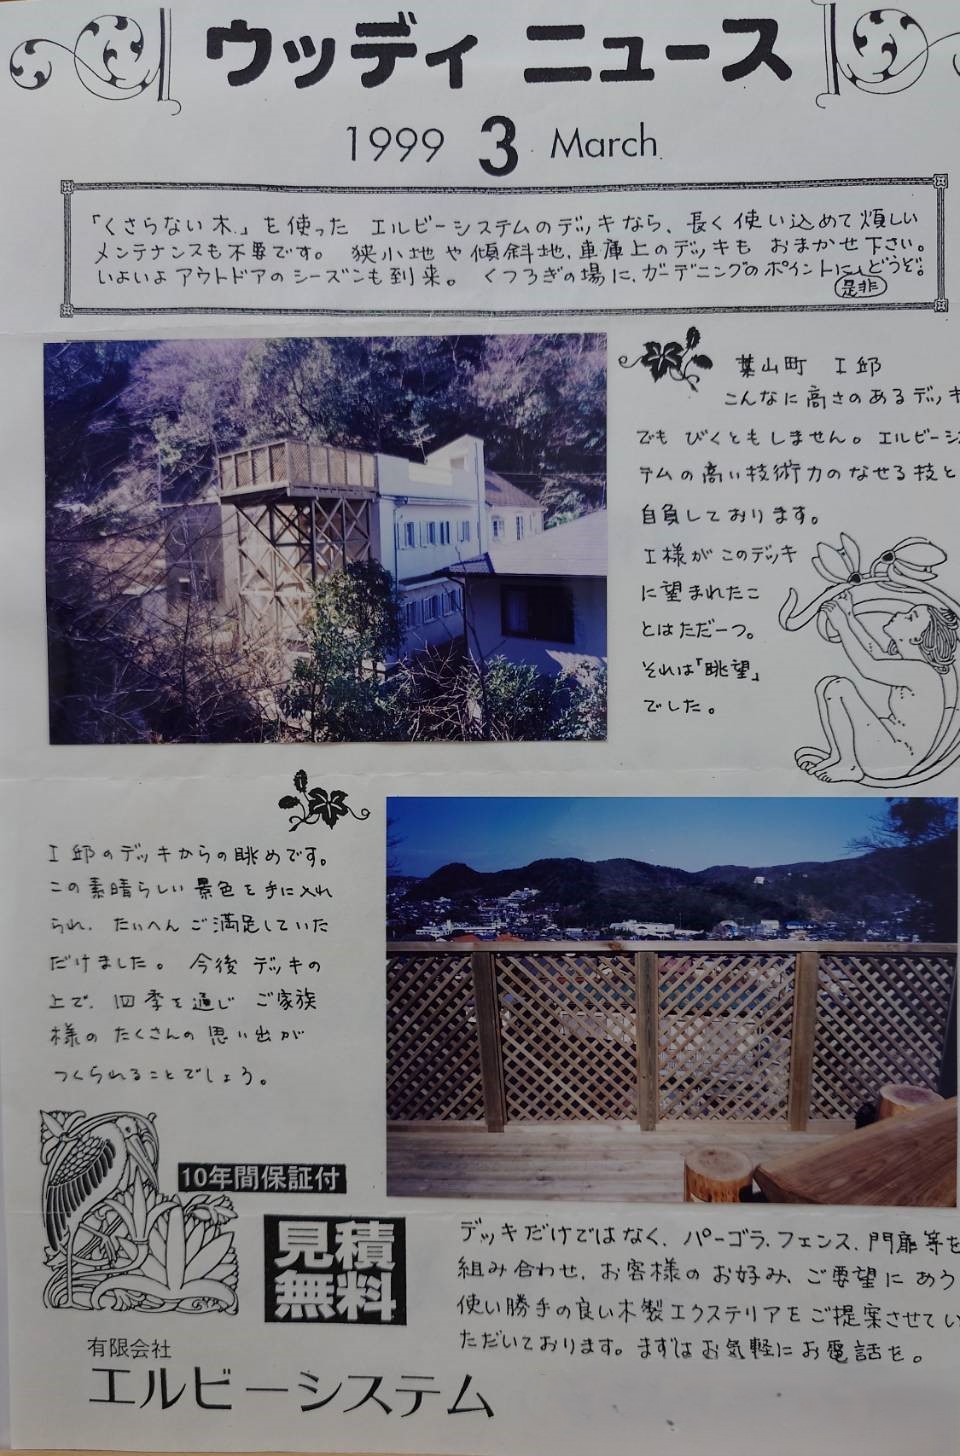 ウッディ ニュース
1999 3 March
「くさらない木」を使った エルビーシステムのデッキなら、長く使い込めて煩しい
メンテナンスも不要です。 狭小地や傾斜地、車庫上のデッキも おまかせ下さい。
いよいよアウトドアのシーズンも到来。 くつろぎの場に、ガーデニングのポイントに、どうぞ。
是非
葉山町 I邸
こんなに高さのあるデッキ
でも びくともしません。エルビーシス
テムの高い技術力のなせる技と
自負しております。
I様がこのデッキ
に望まれたこ
とはただ一つ。
それは「眺望」
でした。
I邸のデッキからの眺めです。
この素晴らしい景色を手に入れ
られ、たいへんご満足していた
だけました。 今後 デッキの
上で、四季を通じ ご家族
様の たくさんの思い出が
つくられることでしょう。
10年間保証付
見積
無料
デッキだけではなく、パーゴラ、フェンス、門扉等を
組み合わせ、お客様のお好み、ご要望にあう
使い勝手の良い木製エクステリアをご提案させてい
ただいております。まずはお気軽にお電話を。
有限会社
エルビーシステム